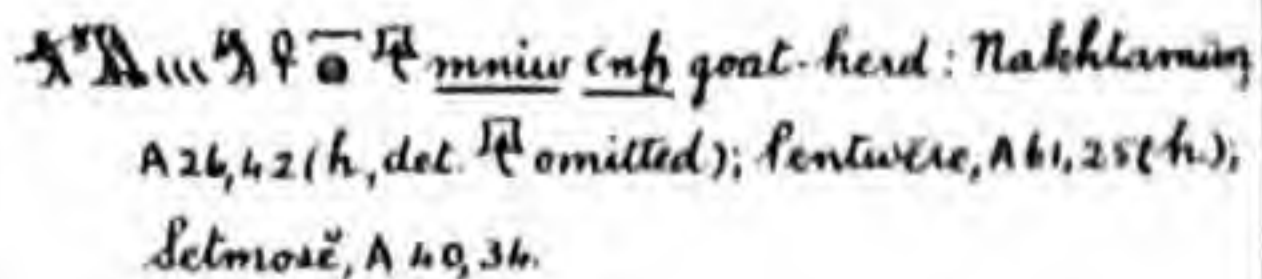 mniw ꜥnḫ goat-herd: Nakhtamūn
A26,42 (h, det. omitted); Pentwēre, A61,25 (h.);
Setmosĕ, A 49,34.